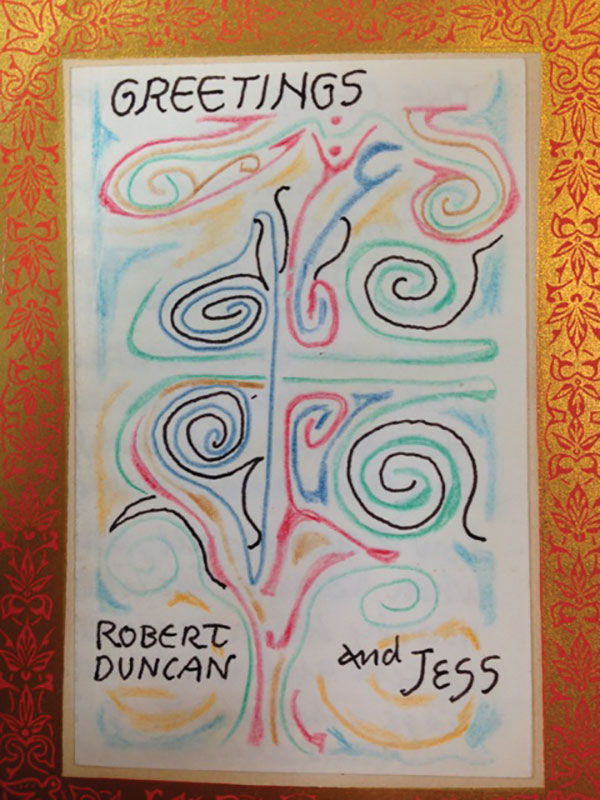 GREETINGS
ROBERT
DUNCAN
and JESS